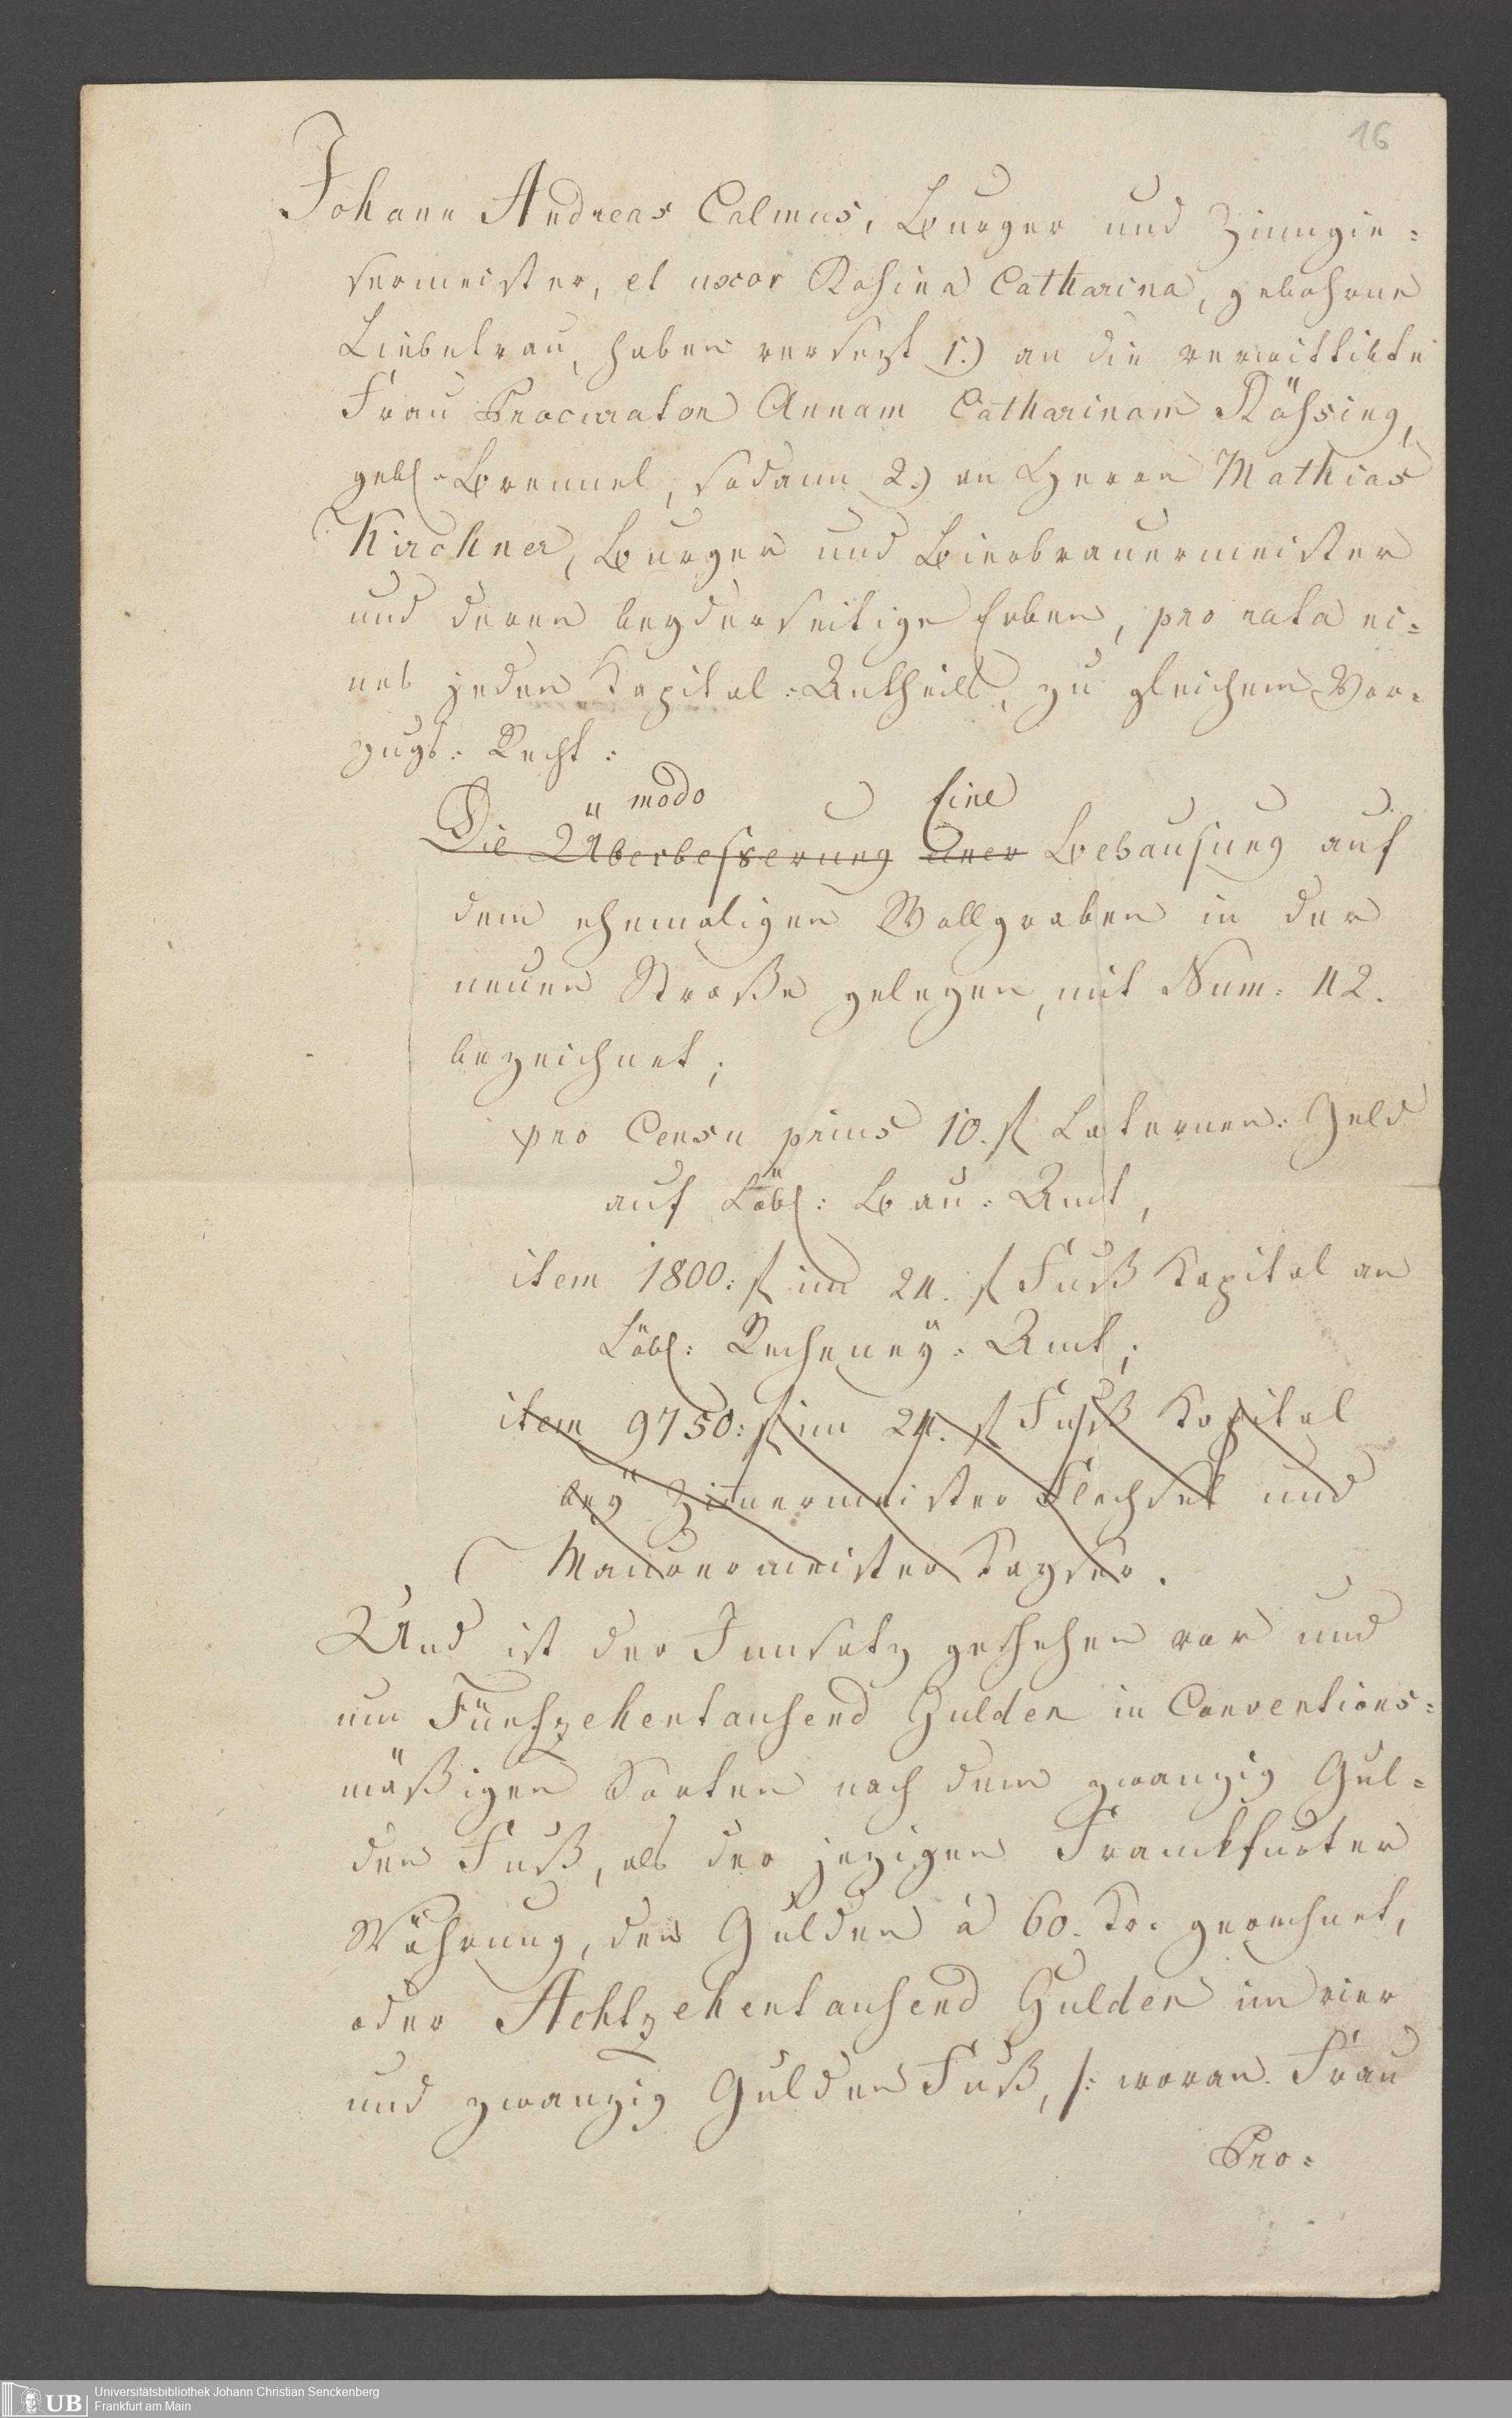 16
Johann Andreas Calmus, Burger und Zinngie=
sermeister, et uxor Rosina Catharina, gebohrne
Liebetrau, haben versezt 1.) an die verwittibte
Frau Procurator Annam Catharinam Rössing,
gebl. Bremmel, sodann 2.) an Herrn Mathias
Kirchner, Burger und Bierbrauermeister
und deren beyderseitige Erben, pro rata ei=
nes jeden Kapital=Antheils, zu gleichem Vor=
zugs=Recht:
modo Eine
Die Überbesserung einer Behausung auf
dem ehemaligen Wollgraben in der
neuen Straße gelegen, mit Num: 42.
bezeichnet;
pro Censu prius 10. f Laternen=Geld
auf Löbl: Bau=Amt,
item 1800: f im 24. f Fuß Kapital an
Löbl: Recheney=Amt;
item 9750: f im 24. f Fuß Kapital
bey Zimmermeister Flechsel und
Maurermeister Kayser.
Und ist der Innsatz geschehen vor und
um Fünfzehentausend Gulden in Conventions=
mäßigen Sorten nach dem zwanzig Gul=
den Fuß, als der jezigen Franckfurter
Währung, den Gulden à 60. Kr. gerechnet,
oder Achtzehentausend Gulden im vier
und zwanzig Gulden Fuß, /: woran Frau
Pro=
UB
Universitätsbibliothek Johann Christian Senckenberg
Frankfurt am Main